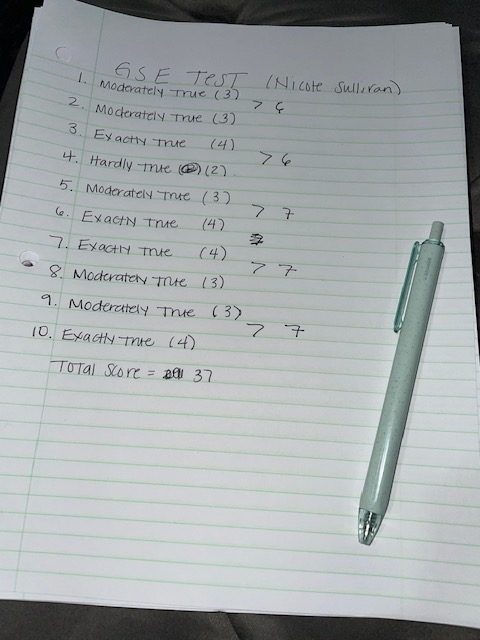 GSE TEST (Nicole Sullivan)
1. Moderately True (3)
> 6
2. Moderately True (3)
3. Exactly True (4)
> 6
4. Hardly True (2)
5. Moderately True (3)
> 7
6. Exactly True (4)
7. Exactly True (4)
> 7
8. Moderately True (3)
9. Moderately True (3)
> 7
10. Exactly True (4)
Total Score = 37